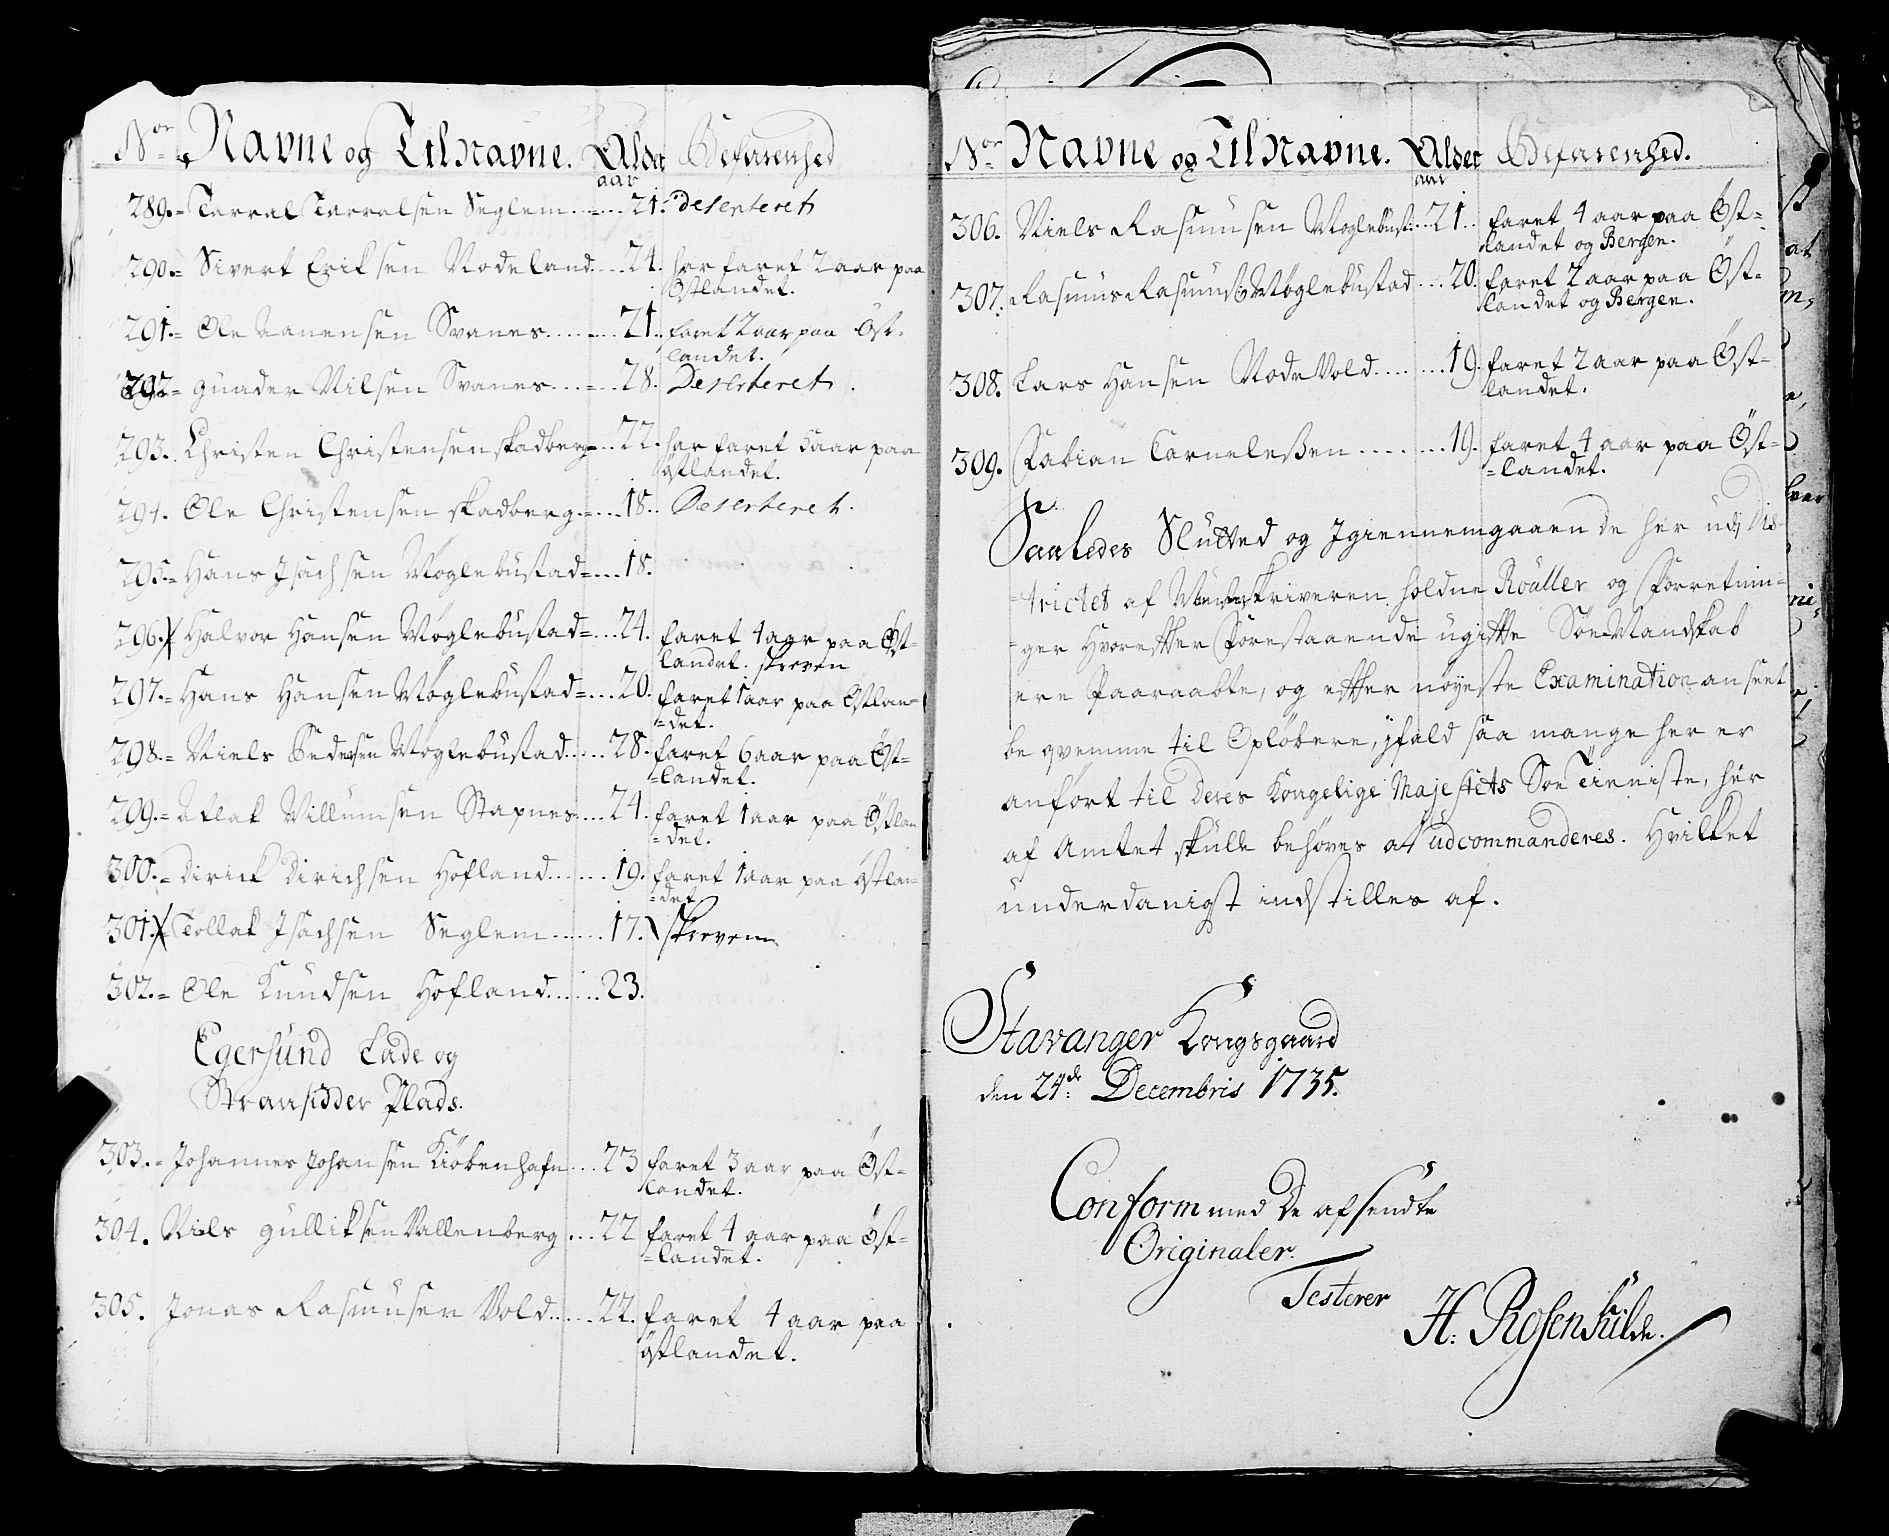 No Navne og Tilnavne. Alder Befarenhed
aar
289.= Tarral Tarralsen Seglem ..... 21. deserteret
290.= Sivert Eriksen Rodeland .... 24. har faret 2 aar paa
Østlandet.
291.= Ole Aanensen Svanes ........ 21. faret 2 aar paa Øst-
landet.
292= gunder Nilsen Svanes ..... 28. Deserteret
293. Christen Christensen skadberg .. 22. har faret 5 aar paa
østlandet.
294. Ole Christensen skadberg .... 18. Deserteret.
295.= Hans Isachsen Møglebustad= .... 18.
296. Halvor Hansen Møglebustad= .... 24. faret 4 aar paa Øst-
landet. skreven
297.= Hans Hansen Møglebustad= .... 20. faret 1 aar paa Østlan-
=det.
298.= Niels Pedersen Møglebustad ..... 28. faret 6 aar paa Øst-
=landet.
299.= Aslak Villumsen Stapnes .... 24. faret 1 aar paa Østlan
=det.
300.= Dirick Dirichsen Hofland ....... 19. faret 1 aar paa østlan-
=det
301. Tollak Isachsen Seglem ...... 17. skreven
302.= Ole Knudsen Hofland ...... 23.
Egersund Lade og
Stransidder Plads.
303.= Johannes Johansen Kiøbenhafn .... 23 faret 3 aar paa Øst-
landet.
304. Niels gulliksen Vallenberg .... 22 faret 4 aar paa Øst-
=landet.
305. Jonas Rasmusen Vold ...... 22. faret 4 aar paa
østlandet.
No Navne og Tilnavne. Alder Befarenhed.
aar
306. Niels Rasmusen Moglebust: .. 21 .. faret 4 aar paa Øst-
landet og Bergen.
307. Rasmus Rasmus: Møglebustad ... 20. faret 2 aar paa Øst-
landet og Bergen.
308. Lars Hansen Rodvold ........ 19. faret 2 aar paa Øst-
landet.
309. Fabian Corneleßen ......... 19. faret 4 aar paa Øst-
=landet.
Saaledes Slutted og Igiennemgaaende her udj Dis-
=trictet af skriveren holdne Roüller og Forretnin-
=ger Hvorefter Forestaaende ugifte Søe Mandskab
ere Paaraabte, og efter nøyeste Examination anseet
beqvemme til Opløbere, ifald saa mange her er
anført til Deres Kongelige Majestets Søe Tieniste, her
af Amtet skulle behøves at udcommanderes. Hvilket
underdanigst indstilles af.
Stavanger Kongsgaard
den 24de Decembris 1735.
Conform med De afsendte
Originaler.
Testerer
H: Rosenkilde.